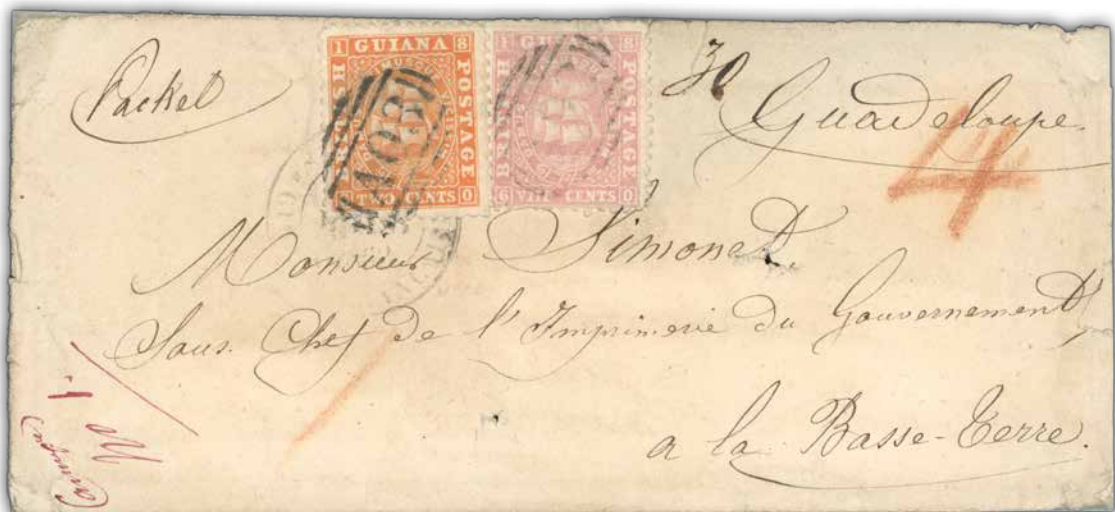 Packet
1 GUIANA 8
BRITISH
POSTAGE
6 TWO CENTS 0
A03
1 8
BRITISH
POSTAGE
6 VIII CENTS 0
Guadeloupe
4
Monsieur Simonet,
Sous Chef de l'Imprimerie du Gouvernement
a la Basse-Terre.